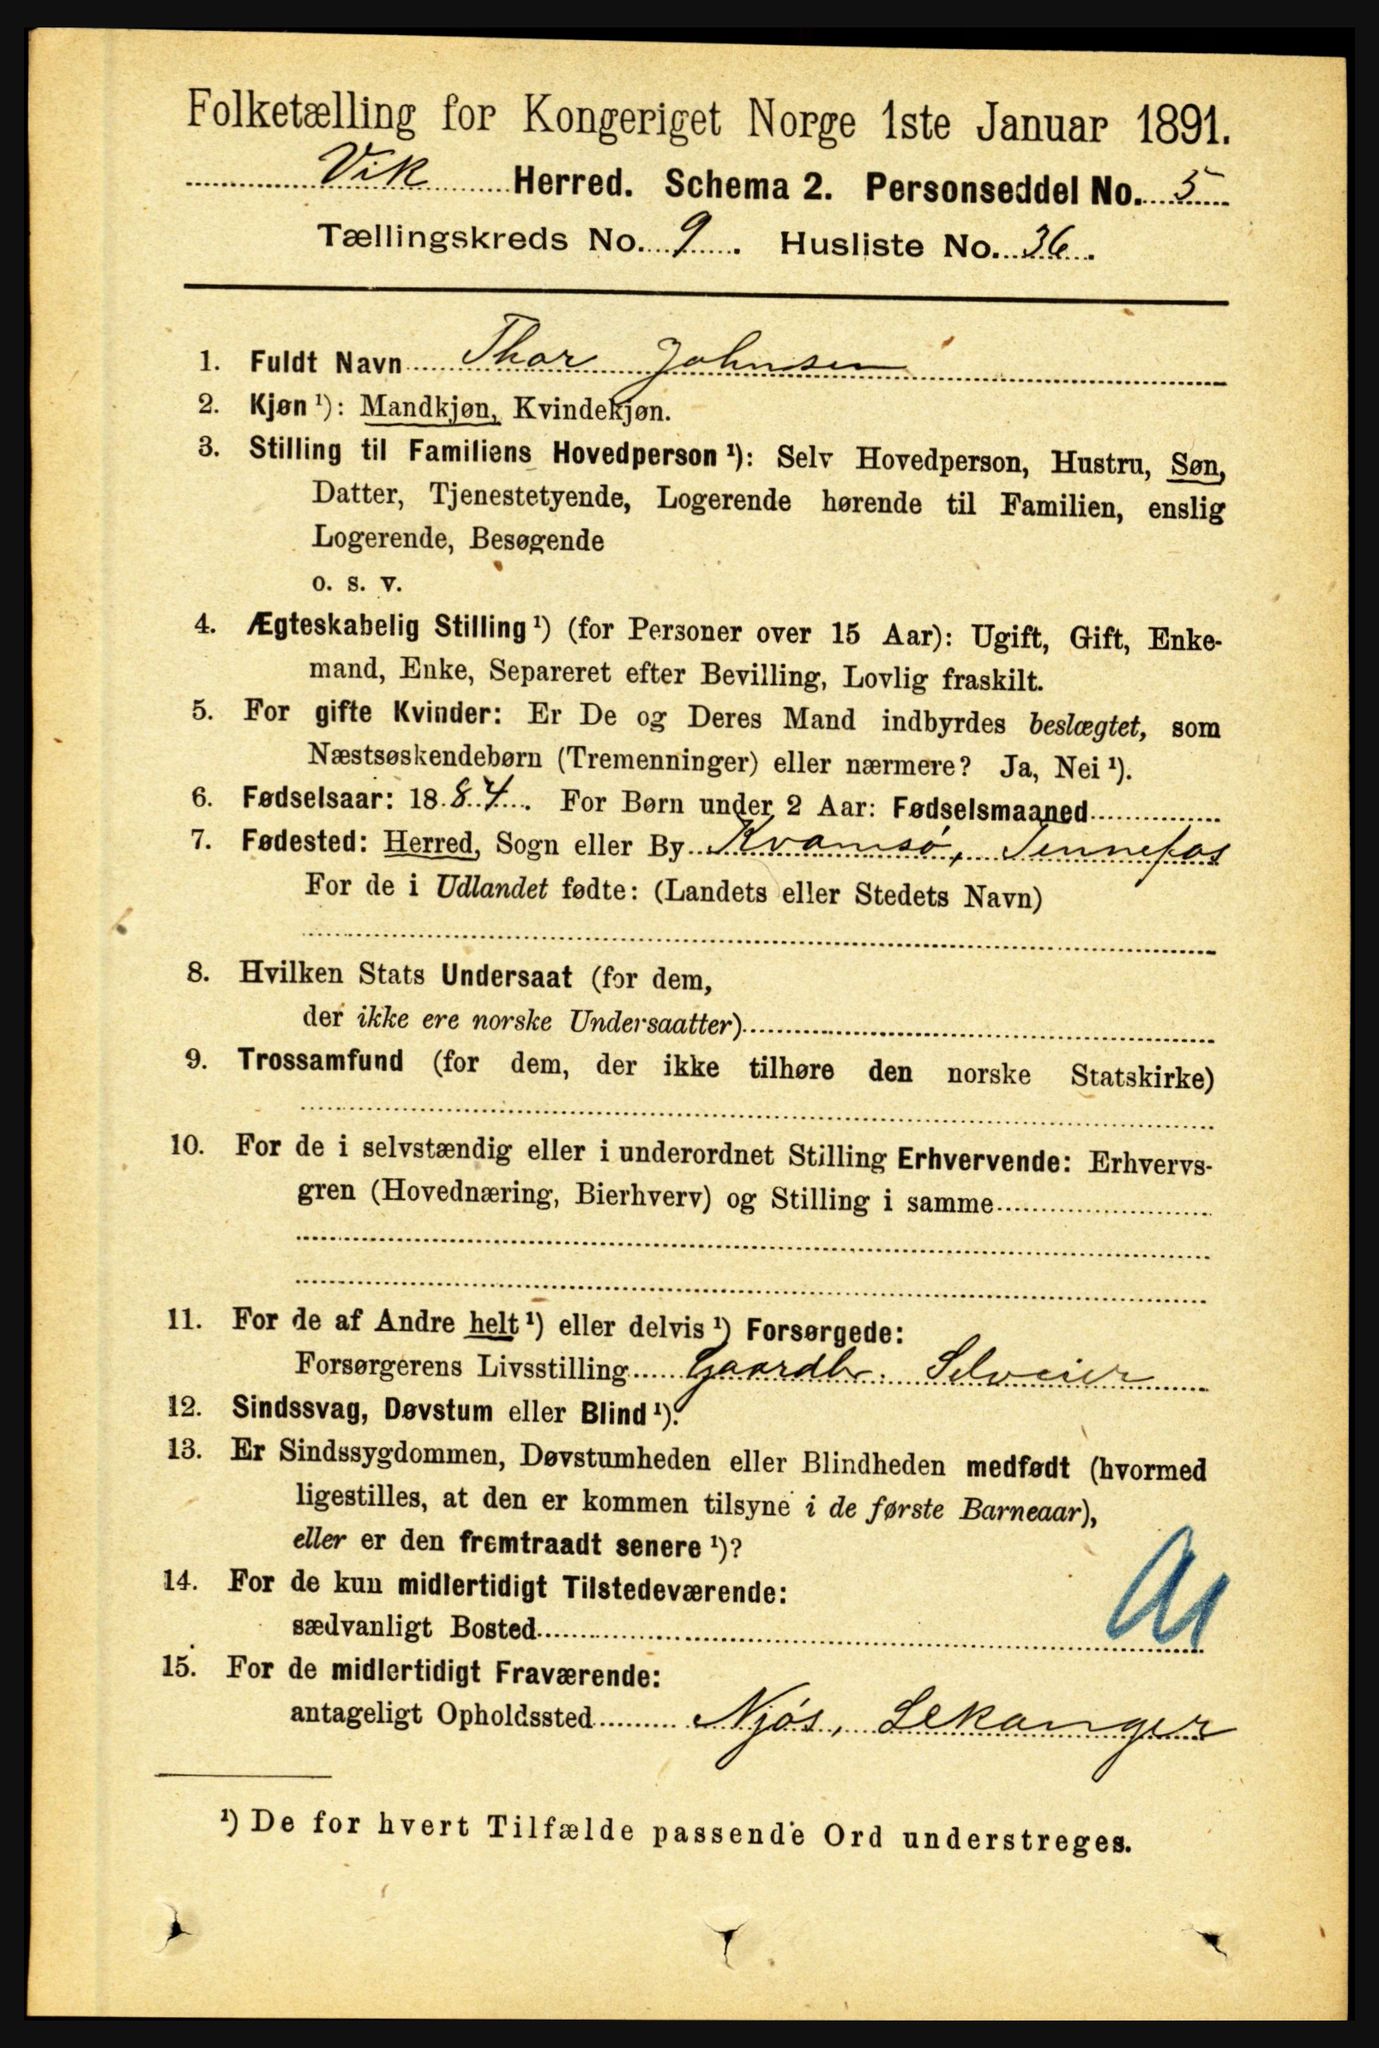 Folketælling for Kongeriget Norge 1ste Januar 1891.
Vik Herred. Schema 2. Personseddel No. 5
Tællingskreds No. 9. Husliste No. 36.
1. Fuldt Navn Thor Johnsen
2. Kjøn ¹): Mandkjøn, Kvindekjøn.
3. Stilling til Familiens Hovedperson ¹): Selv Hovedperson, Hustru, Søn,
Datter, Tjenestetyende, Logerende hørende til Familien, enslig
Logerende, Besøgende
o. s. v.
4. Ægteskabelig Stilling ¹) (for Personer over 15 Aar): Ugift, Gift, Enke-
mand, Enke, Separeret efter Bevilling, Lovlig fraskilt.
5. For gifte Kvinder: Er De og Deres Mand indbyrdes beslægtet, som
Næstsøskendebørn (Tremenninger) eller nærmere? Ja, Nei ¹).
6. Fødselsaar: 1884. For Børn under 2 Aar: Fødselsmaaned
7. Fødested: Herred, Sogn eller By Kvamsø, Tennefos
For de i Udlandet fødte: (Landets eller Stedets Navn)
8. Hvilken Stats Undersaat (for dem,
der ikke ere norske Undersaatter)
9. Trossamfund (for dem, der ikke tilhøre den norske Statskirke)
10. For de i selvstændig eller i underordnet Stilling Erhvervende: Erhvervs-
gren (Hovednæring, Bierhverv) og Stilling i samme
11. For de af Andre helt ¹) eller delvis ¹) Forsørgede:
Forsørgerens Livsstilling Gaardbr. Selveier
12. Sindssvag, Døvstum eller Blind ¹).
13. Er Sindssygdommen, Døvstumheden eller Blindheden medfødt (hvormed
ligestilles, at den er kommen tilsyne i de første Barneaar),
eller er den fremtraadt senere ¹)?
14. For de kun midlertidigt Tilstedeværende:
sædvanligt Bosted
15. For de midlertidigt Fraværende:
antageligt Opholdssted Njøs, Lekanger
¹) De for hvert Tilfælde passende Ord understreges.